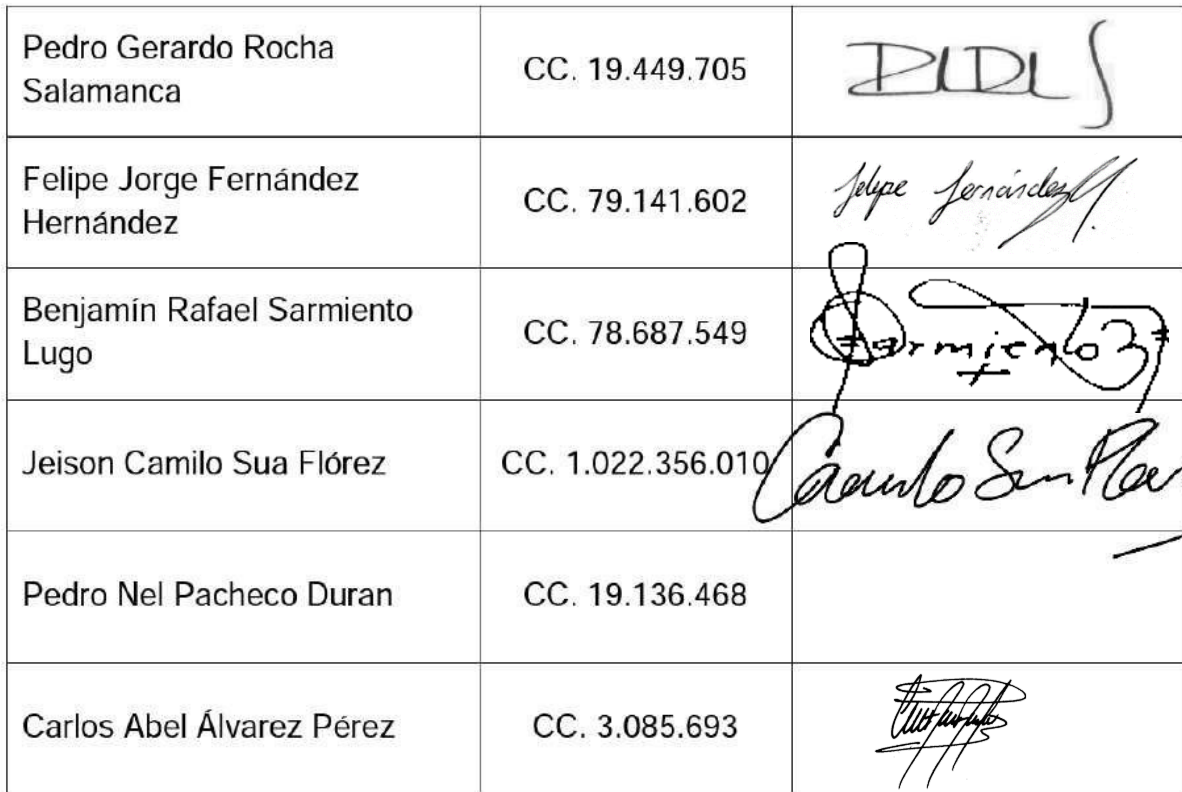 Pedro Gerardo Rocha
Salamanca
CC. 19.449.705
Felipe Jorge Fernández
Hernández
CC. 79.141.602
Felipe Fernández
Benjamín Rafael Sarmiento
Lugo
CC. 78.687.549
Sarmiento
Jeison Camilo Sua Flórez
CC. 1.022.356.010
Camilo Sua Flor
Pedro Nel Pacheco Duran
CC. 19.136.468
Carlos Abel Álvarez Pérez
CC. 3.085.693